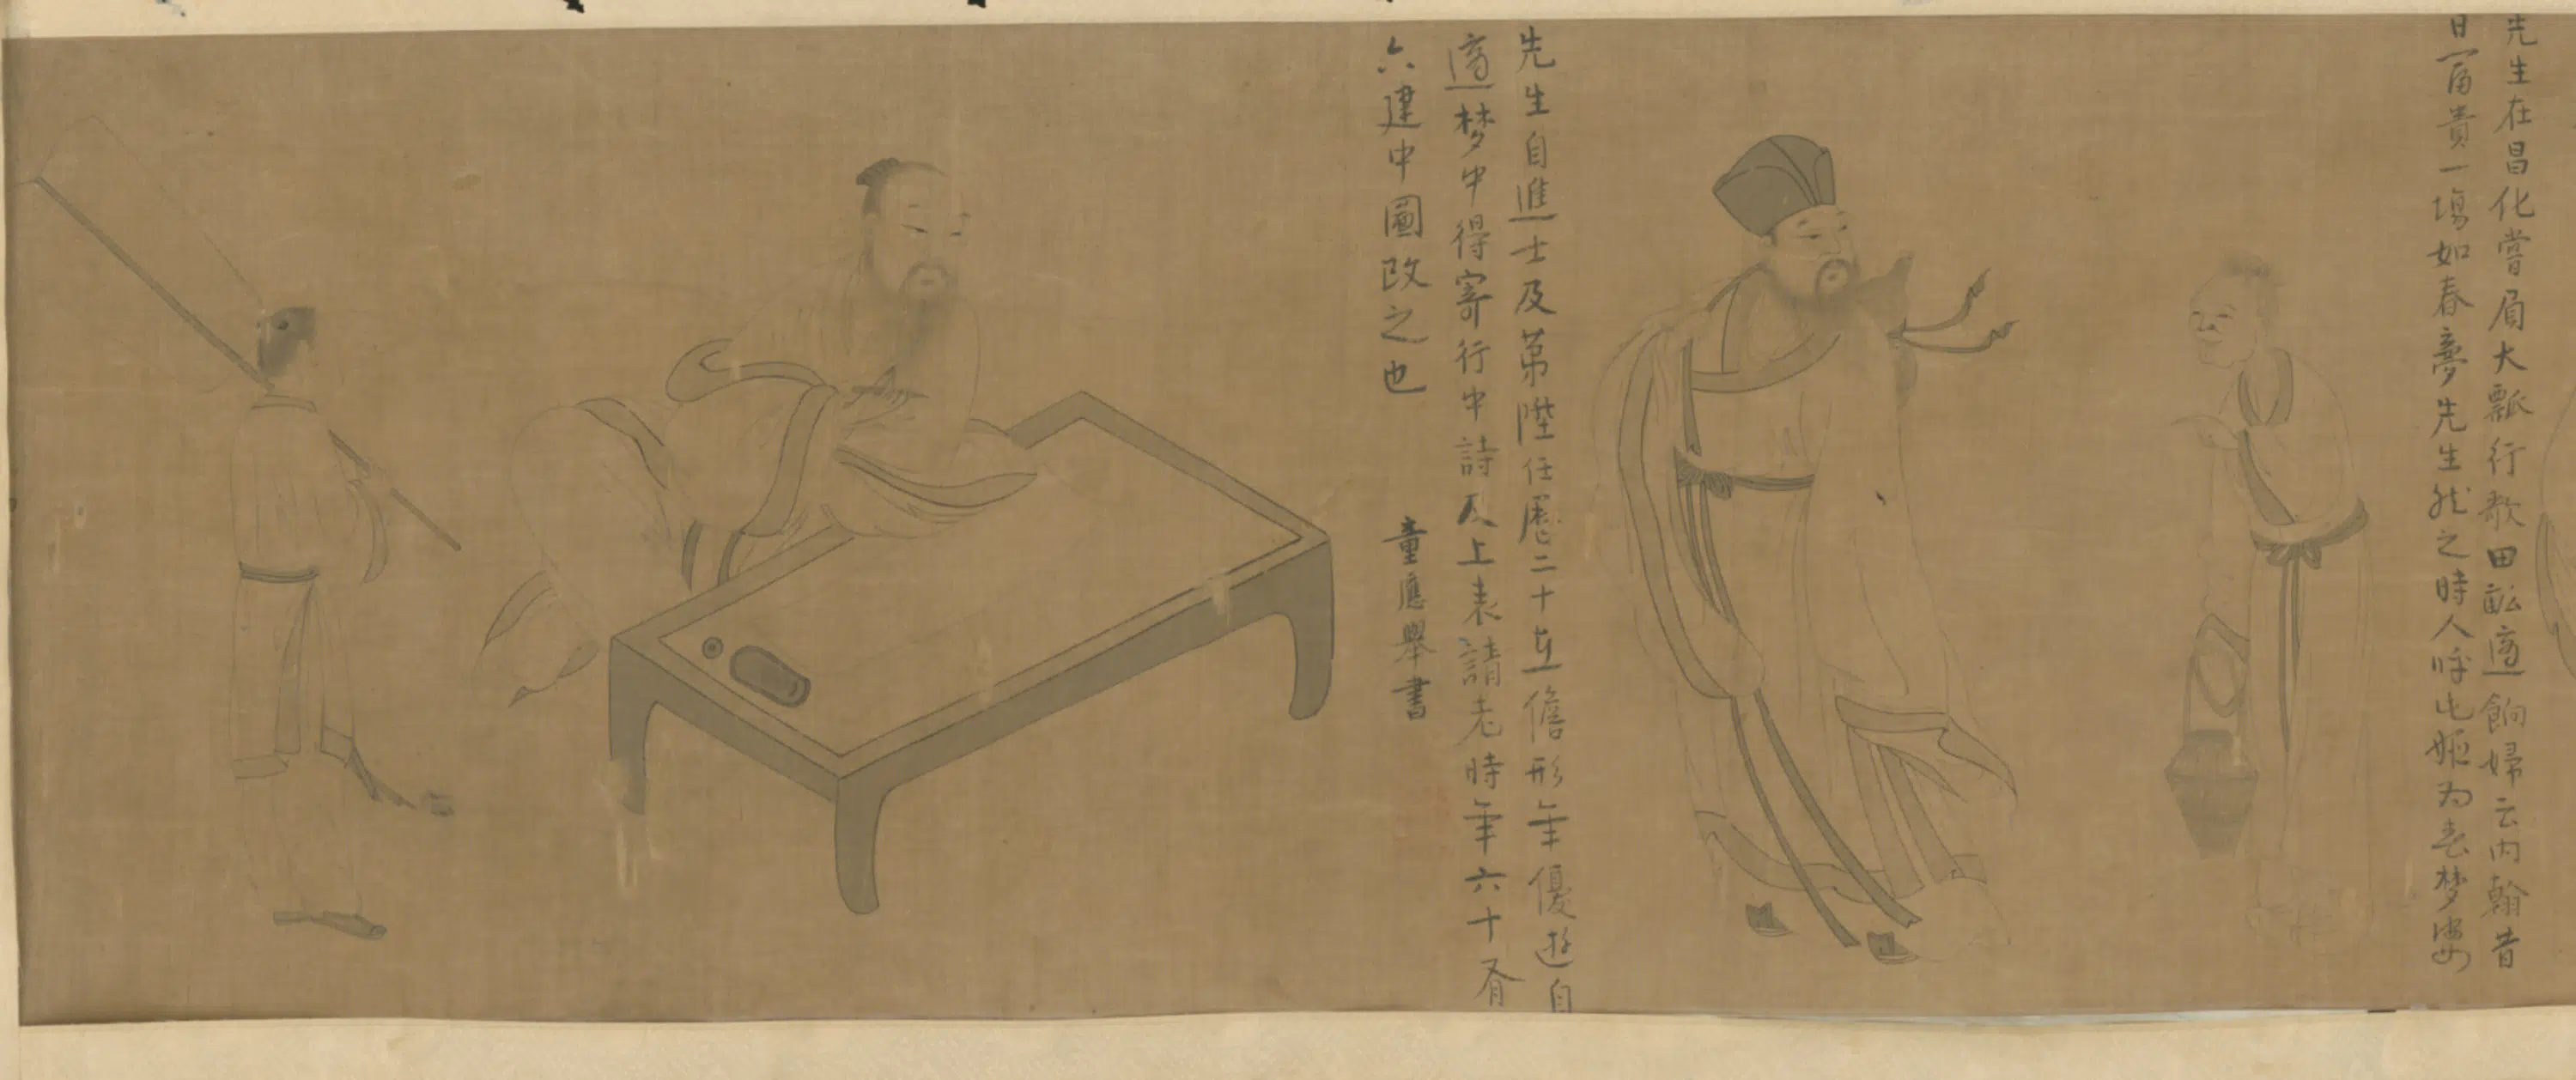 先生在昌化嘗眉大瓢行歌田畝適餉婦云內翰昔
日富貴一場如春夢先生然之時人呼此姬为春梦婆
先生自進士及第陞任歷二十五儋形年優遊自
適梦中得寄行中詩及上表請老時年六十有
六建中國改之也
童應舉書